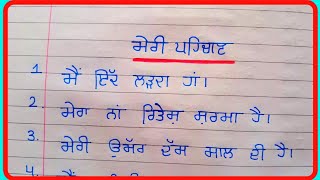 ਮੇਰੀ ਪਹਿਚਾਣ
1. ਮੈਂ ਇੱਕ ਲੜਕਾ ਹਾਂ।
2. ਮੇਰਾ ਨਾਂ ਰਿਤੇਸ਼ ਸ਼ਰਮਾ ਹੈ।
3. ਮੇਰੀ ਉਮਰ ਦੱਸ ਸਾਲ ਦੀ ਹੈ।
4. ਮੈਂ